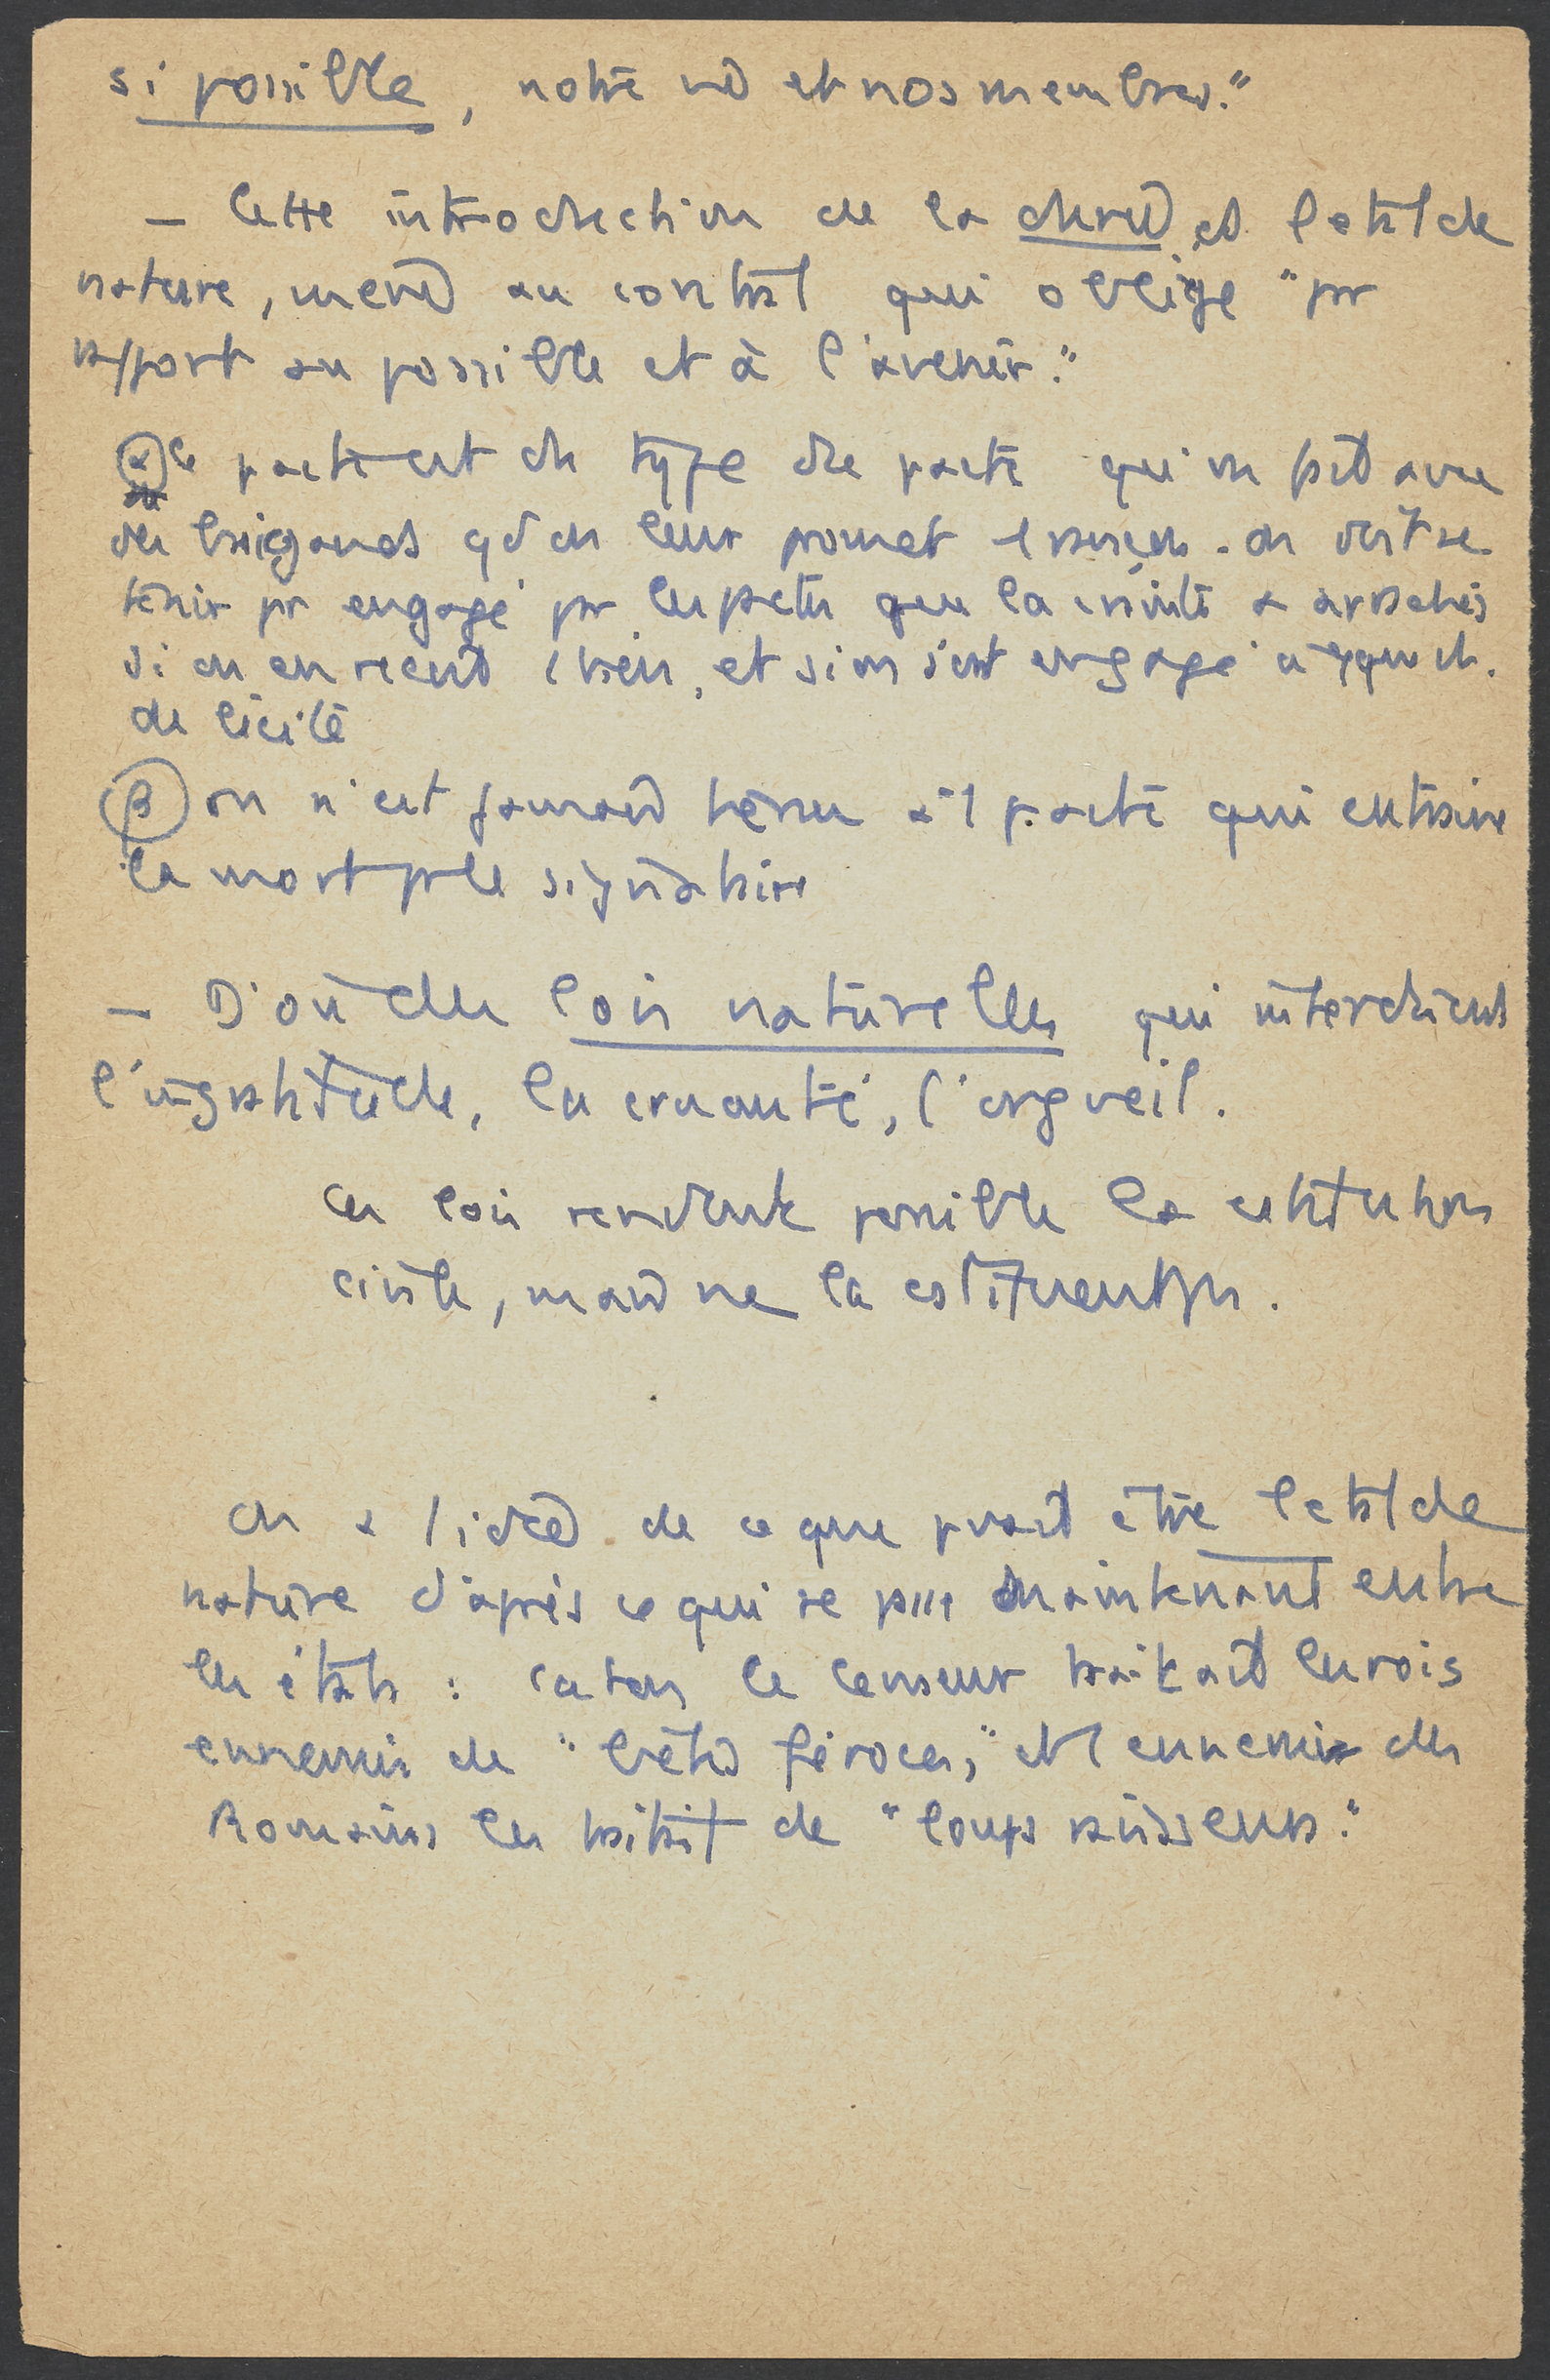 si possible, notre vie et nos membres."
— Cette introduction de la durée ds l'état de
nature, mène au contrat qui oblige "pr
rapport au possible et à l'avenir."
α ce pacte est du type du pacte qu'on fait avec
des brigands qd on leur promet 1 rançon. on doit se
tenir pr engagé pr les pactes que la crainte a arrachés
si on en reçoit 1 bien, et si on s'est engagé à qque ch.
de licite
β on n'est jamais tenu à 1 pacte qui entraine
la mort pr le signataire
— D'où des lois naturelles qui interdisent
l'ingratitude, la cruauté, l'orgueil.
Ces lois rendent possible la constitution
civile, mais ne la constituent pas.
On a l'idée de ce que pouvait être l'état de
nature d'après ce qui se passe maintenant entre
les états : Caton le Censeur traitait les rois
ennemis de "bêtes féroces," et 1 ennemi des
Romains les traitait de "loups ravisseurs."